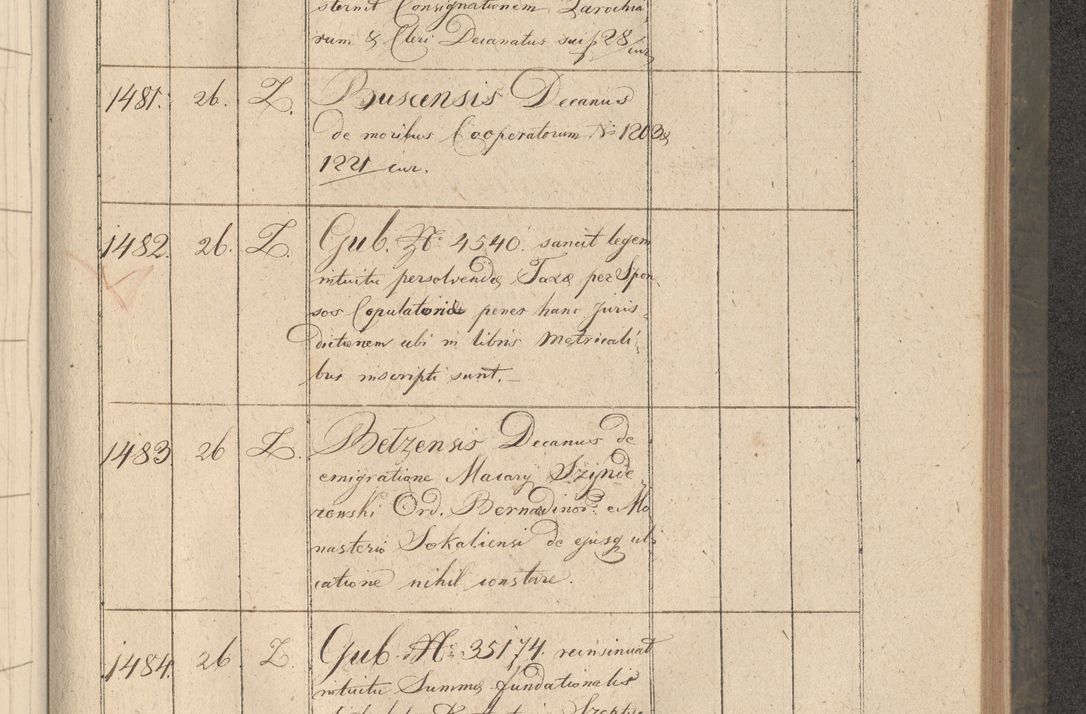 sternit Consignationem Parochia,
rum & Cleri Decanatus sui p 28 cur
1481. 26. Z. Buscensis Decanus
de moribus Cooperatorum No 1203 &
1221 cur.
1482. 26. Z. Gub. No 4540. sancit legem
intuitu persolvendæ Taxæ per Spon
sos Copulatoriæ penes hanc Juris,
dictionem ubi in libris Metricali,
bus inscripti sunt.
1483. 26 Z. Betzensis Decanus de
emigratione Macarÿ
Ord. Bernadinor. e Mo
nasterio Sokaliensi de ejusq ubi
catione nihil constare.
1484. 26. Z. Gub. No 35174. reinsinuat
intuitu Summæ fundationalis